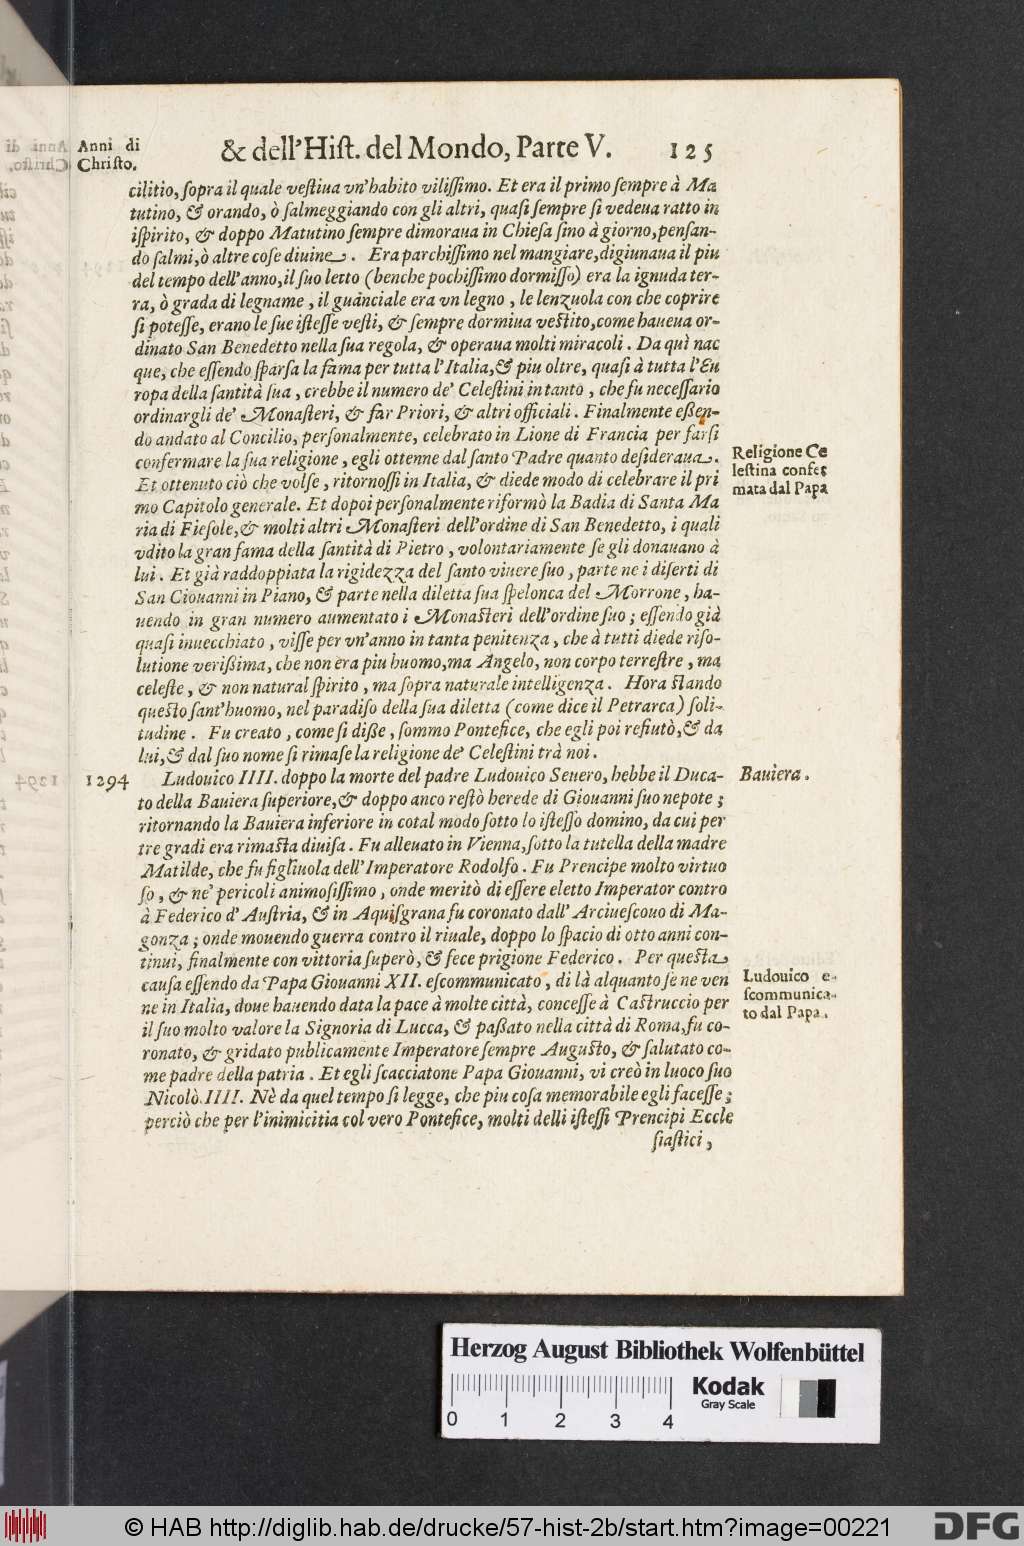 Anni di
Christo.
& dell'Hiſt. del Mondo, Parte V. 125
cilitio, ſopra il quale veſtiua vn'habito viliſſimo. Et era il primo ſempre à Ma
tutino, & orando, ò ſalmeggiando con gli altri, quaſi ſempre ſi vedeua ratto in
iſpirito, & doppo Matutino ſempre dimoraua in Chieſa ſino à giorno, penſan-
do ſalmi, ò altre coſe diuine. Era parchiſſimo nel mangiare, digiunaua il piu
del tempo dell'anno, il ſuo letto (benche pochiſſimo dormiſſo) era la ignuda ter-
ra, ò grada di legname, il guanciale era vn legno, le lenzuola con che coprire
ſi poteſſe, erano le ſue iſteſſe veſti, & ſempre dormiua veſtito, come haueua or-
dinato San Benedetto nella ſua regola, & operaua molti miracoli. Da quì nac
que, che eſſendo ſparſa la fama per tutta l'Italia, & piu oltre, quaſi à tutta l'Eu
ropa della ſantità ſua, crebbe il numero de' Celeſtini in tanto, che fu neceſſario
ordinargli de' Monaſteri, & far Priori, & altri officiali. Finalmente eßen-
do andato al Concilio, perſonalmente, celebrato in Lione di Francia per farſi
confermare la ſua religione, egli ottenne dal ſanto Padre quanto deſideraua.
Et ottenuto ciò che volſe, ritornoſſi in Italia, & diede modo di celebrare il pri
mo Capitolo generale. Et dopoi perſonalmente riformò la Badia di Santa Ma
ria di Fieſole, & molti altri Monaſteri dell'ordine di San Benedetto, i quali
vdito la gran fama della ſantità di Pietro, volontariamente ſe gli donauano à
lui. Et già raddoppiata la rigidezza del ſanto viuere ſuo, parte ne i diſerti di
San Ciouanni in Piano, & parte nella diletta ſua ſpelonca del Morrone, ha-
uendo in gran numero aumentato i Monaſteri dell'ordine ſuo; eſſendo già
quaſi inuecchiato, viſſe per vn'anno in tanta penitenza, che à tutti diede riſo-
lutione verißima, che non era piu huomo, ma Angelo, non corpo terreſtre, ma
celeſte, & non natural ſpirito, ma ſopra naturale intelligenza. Hora ſtando
queſto ſant'huomo, nel paradiſo della ſua diletta (come dice il Petrarca) ſoli-
tudine. Fu creato, come ſi diße, ſommo Pontefice, che egli poi refiutò, & da
lui, & dal ſuo nome ſi rimaſe la religione de' Celeſtini trà noi.
Religione Ce
leſtina confer
mata dal Papa
1294 Ludouico IIII. doppo la morte del padre Ludouico Seuero, hebbe il Duca-
to della Bauiera ſuperiore, & doppo anco reſtò herede di Giouanni ſuo nepote;
ritornando la Bauiera inferiore in cotal modo ſotto lo iſteſſo domino, da cui per
tre gradi era rimaſta diuiſa. Fu alleuato in Vienna, ſotto la tutella della madre
Matilde, che fu figliuola dell'Imperatore Rodolfo. Fu Prencipe molto virtuo
ſo, & ne' pericoli animoſiſſimo, onde meritò di eſſere eletto Imperator contro
à Federico d'Auſtria, & in Aquiſgrana fu coronato dall'Arciueſcouo di Ma-
gonza; onde mouendo guerra contro il riuale, doppo lo ſpacio di otto anni con-
tinui, finalmente con vittoria ſuperò, & fece prigione Federico. Per queſta
cauſa eſſendo da Papa Giouanni XII. eſcommunicato, di là alquanto ſe ne ven
ne in Italia, doue hauendo data la pace à molte città, conceſſe à Caſtruccio per
il ſuo molto valore la Signoria di Lucca, & paßato nella città di Roma, fu co-
ronato, & gridato publicamente Imperatore ſempre Auguſto, & ſalutato co-
me padre della patria. Et egli ſcacciatone Papa Giouanni, vi creò in luoco ſuo
Nicolò IIII. Nè da quel tempo ſi legge, che piu coſa memorabile egli faceſſe;
perciò che per l'inimicitia col vero Pontefice, molti delli iſteſſi Prencipi Eccle
ſiaſtici,
Bauiera.
Ludouico e-
ſcommunica-
to dal Papa.
Herzog August Bibliothek Wolfenbüttel
0 1 2 3 4
Kodak
Gray Scale
© HAB http://diglib.hab.de/drucke/57-hist-2b/start.htm?image=00221
DFG